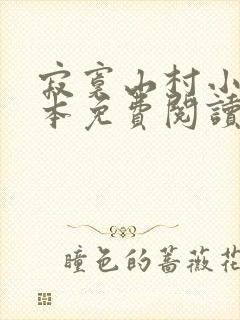 寂寞山村小
本免费閱讀
瞳色的蔷薇花